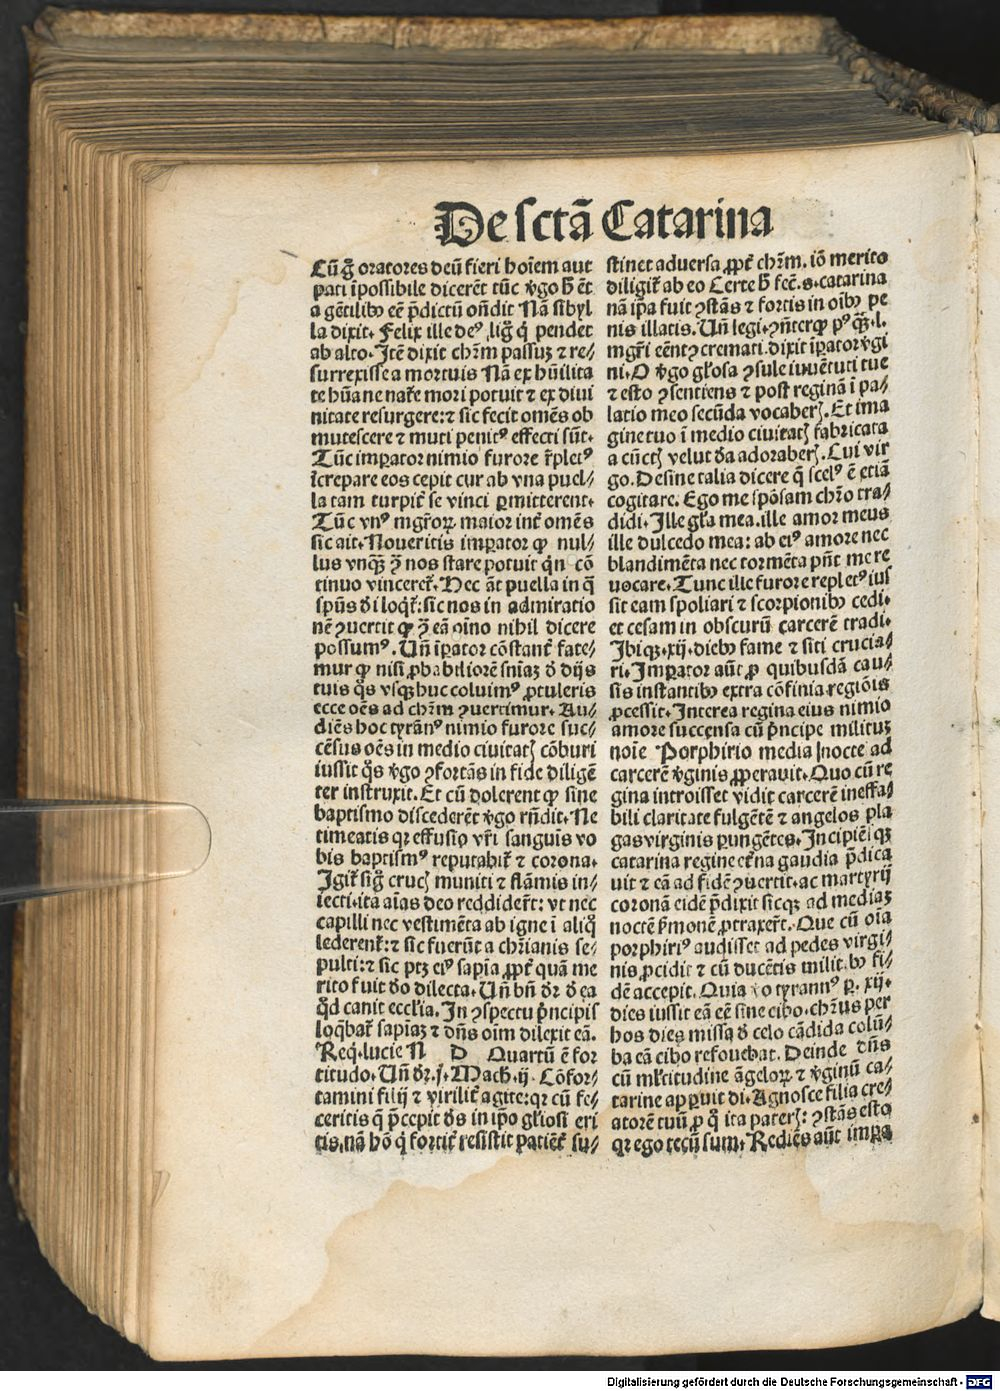 De sctā Catarina
Cū g̃ oratores deū fieri hoīem aut
pati īpossibile dicerēt tūc v̄go h̄ ēt
a gētilibꝰ eē p̄dictū oñdit Nā sibyl
la dixit. Felix ille deꝰ lig̃ q̇ pendet
ab alto. Itē dixit chr̄m passuꝫ ⁊ re⸗
surrexisse a mortuis Nā ex hūilita
te hūane nat̄e mori potuit ⁊ ex divi
nitate resurgere: ⁊ sic fecit omēs ob
mutescere ⁊ muti penitꝰ effecti sūt.
Tūc imperator nimio furore r̄pletꝰ
īcrepare eos cepit cur ab vna puel⸗
la tam turpit̄ se vinci ꝑmitterent.
Tūc vnꝰ mgr̄oꝝ maior int̄ omēs
sic ait. Noveritis imꝑator ꝙ nul⸗
lus vnqꝫ ꝯ̄ nos stare potuit qn̄ cō
tinuo vinceret̄. Hec āt puella in q̄
spūs dī loqt̄: sic nos in admiratio
nē ꝯvertit ꝙ ꝯ̄ eā oīno nihil dicere
possumꝰ. Uñ īꝑator cōstant̄ fate⸗
mur ꝙ nisi ꝓbabiliorē sn̄iaꝫ d̄ dijs
tuis q̄s vsqꝫ huc coluimꝰ ꝓtuleris
ecce oēs ad chr̄m ꝯvertimur. Au⸗
diēs hoc tyrānꝰ nimio furore suc⸗
cēsus oēs in medio civitatꝭ cōburi
iussit q̄s v̄go ꝯfortās in fide diligē
ter instruxit. Et cū dolerent ꝙ sine
baptismo discederēt v̄go rn̄dit. Ne
timeatis qꝛ effusio vr̄i sanguīs vo
bis baptismꝰ reputabit̄ ⁊ corona.
Igit̄ sig̃ crucꝭ muniti ⁊ flāmis in⸗
iecti. ita aīas deo reddider̄t: vt nec
capilli nec vestimēta ab igne ī aliq̄
lederent̄: ⁊ sic fuerūt a chr̄ianis se⸗
pulti: ⁊ sic ptꝫ eiꝰ sapīa ꝓpt̄ quā me
rito fuit deo dilecta. Uñ bn̄ dr̄ d̄ ea
q̇d canit eccl̄ia. In ꝯspectu p̄ncipis
loq̄bat̄ sapiaꝫ ⁊ dn̄s oīm dilexit eā.
Req̇. lucie N D Quartū ē for
titudo. Uñ dr̄. j. Mach. ij. Cōfor⸗
tamini filij ⁊ virilit̄ agite: qꝛ cū fe⸗
ceritis q̄ p̄cepit dn̄s in ipo gl̄iosi eri
tis. nā hō q̇ fortit̄ resistit patiēt̄ su⸗
stinet adversa ꝓpt̄ chr̄m. iō merito
diligit̄ ab eo Certe h̄ fec̄. s. catarina
nā ip̄a fuit ꝯstās ⁊ fortis in oībꝰ pe
nis illatis. Uñ legi. ꝯn̄terqꝫ pꝰ qꝫ. l.
mgr̄i eēnt ꝯcremati. dixit īꝑator v̄gi
ni. O v̄go gl̄osa ꝯsule iuvētuti tue
⁊ esto ꝯsentiens ⁊ post reginā ī pa⸗
latio meo secūda vocaberꝭ. Et ima
gine tuo ī medio civitatꝭ fabricata
a cūctꝭ velut dea adoraberꝭ. Cui vir
go. Desine talia dicere q̄ scelꝰ ē etiā
cogitare. Ego me spōsam chr̄o tra⸗
didi. Ille gl̄a mea. ille amor meus
ille dulcedo mea: ab eiꝰ amore nec
blandimēta nec tormēta pn̄t me re
vocare. Tunc ille furore repletꝰ ius
sit eam spoliari ⁊ scorpionibꝰ cedi.
et cesam in obscurū carcerē tradi.
Ibiqꝫ. xij. diebꝰ fame ⁊ siti crucia⸗
ri. Imꝑator aūt ꝓ quibusdā cau⸗
sis instantibꝰ extra cōfinia regiōis
ꝓcessit. Interea regina eius nimio
amore succensa cū p̄ncipe militꝫ
noīe Porphirio media nocte ad
carcerē v̄ginis ꝓperavit. Quo cū re
gina introisset vidit carcerē ineffa⸗
bili claritate fulgētē ⁊ angelos pla
gas virginis ꝑungētes. Incipiēsqꝫ
catarina regine et̄na gaudia p̄dica
vit ⁊ eā ad fidē ꝯvertit. ac martyrij
coronā eidē p̄dixit sicqꝫ ad mediaꝫ
noctē s̄monē ꝓtraxer̄t. Que cū oīa
porphiriꝰ audisset ad pedes virgi⸗
nis ꝓcidit ⁊ cū ducētis militibꝰ fi⸗
dē accepit. Quia vo tyrannꝰ ꝑ. xij.
dies iussit eā eē sine cibo. chr̄us per
hos dies missa d̄ celo cādida colū⸗
ba eā cibo refovebat. Deinde dn̄s
cū ml̄titudine āgeloꝝ ⁊ v̄ginū ca⸗
tarine apparuit di. Agnosce filia cre⸗
atorē tuū ꝓ q̄ ita paterꝭ: ꝯstās esto
qꝛ ego tecū sum. Rediēs aūt impa
Digitalisierung gefördert durch die Deutsche Forschungsgemeinschaft - DFG